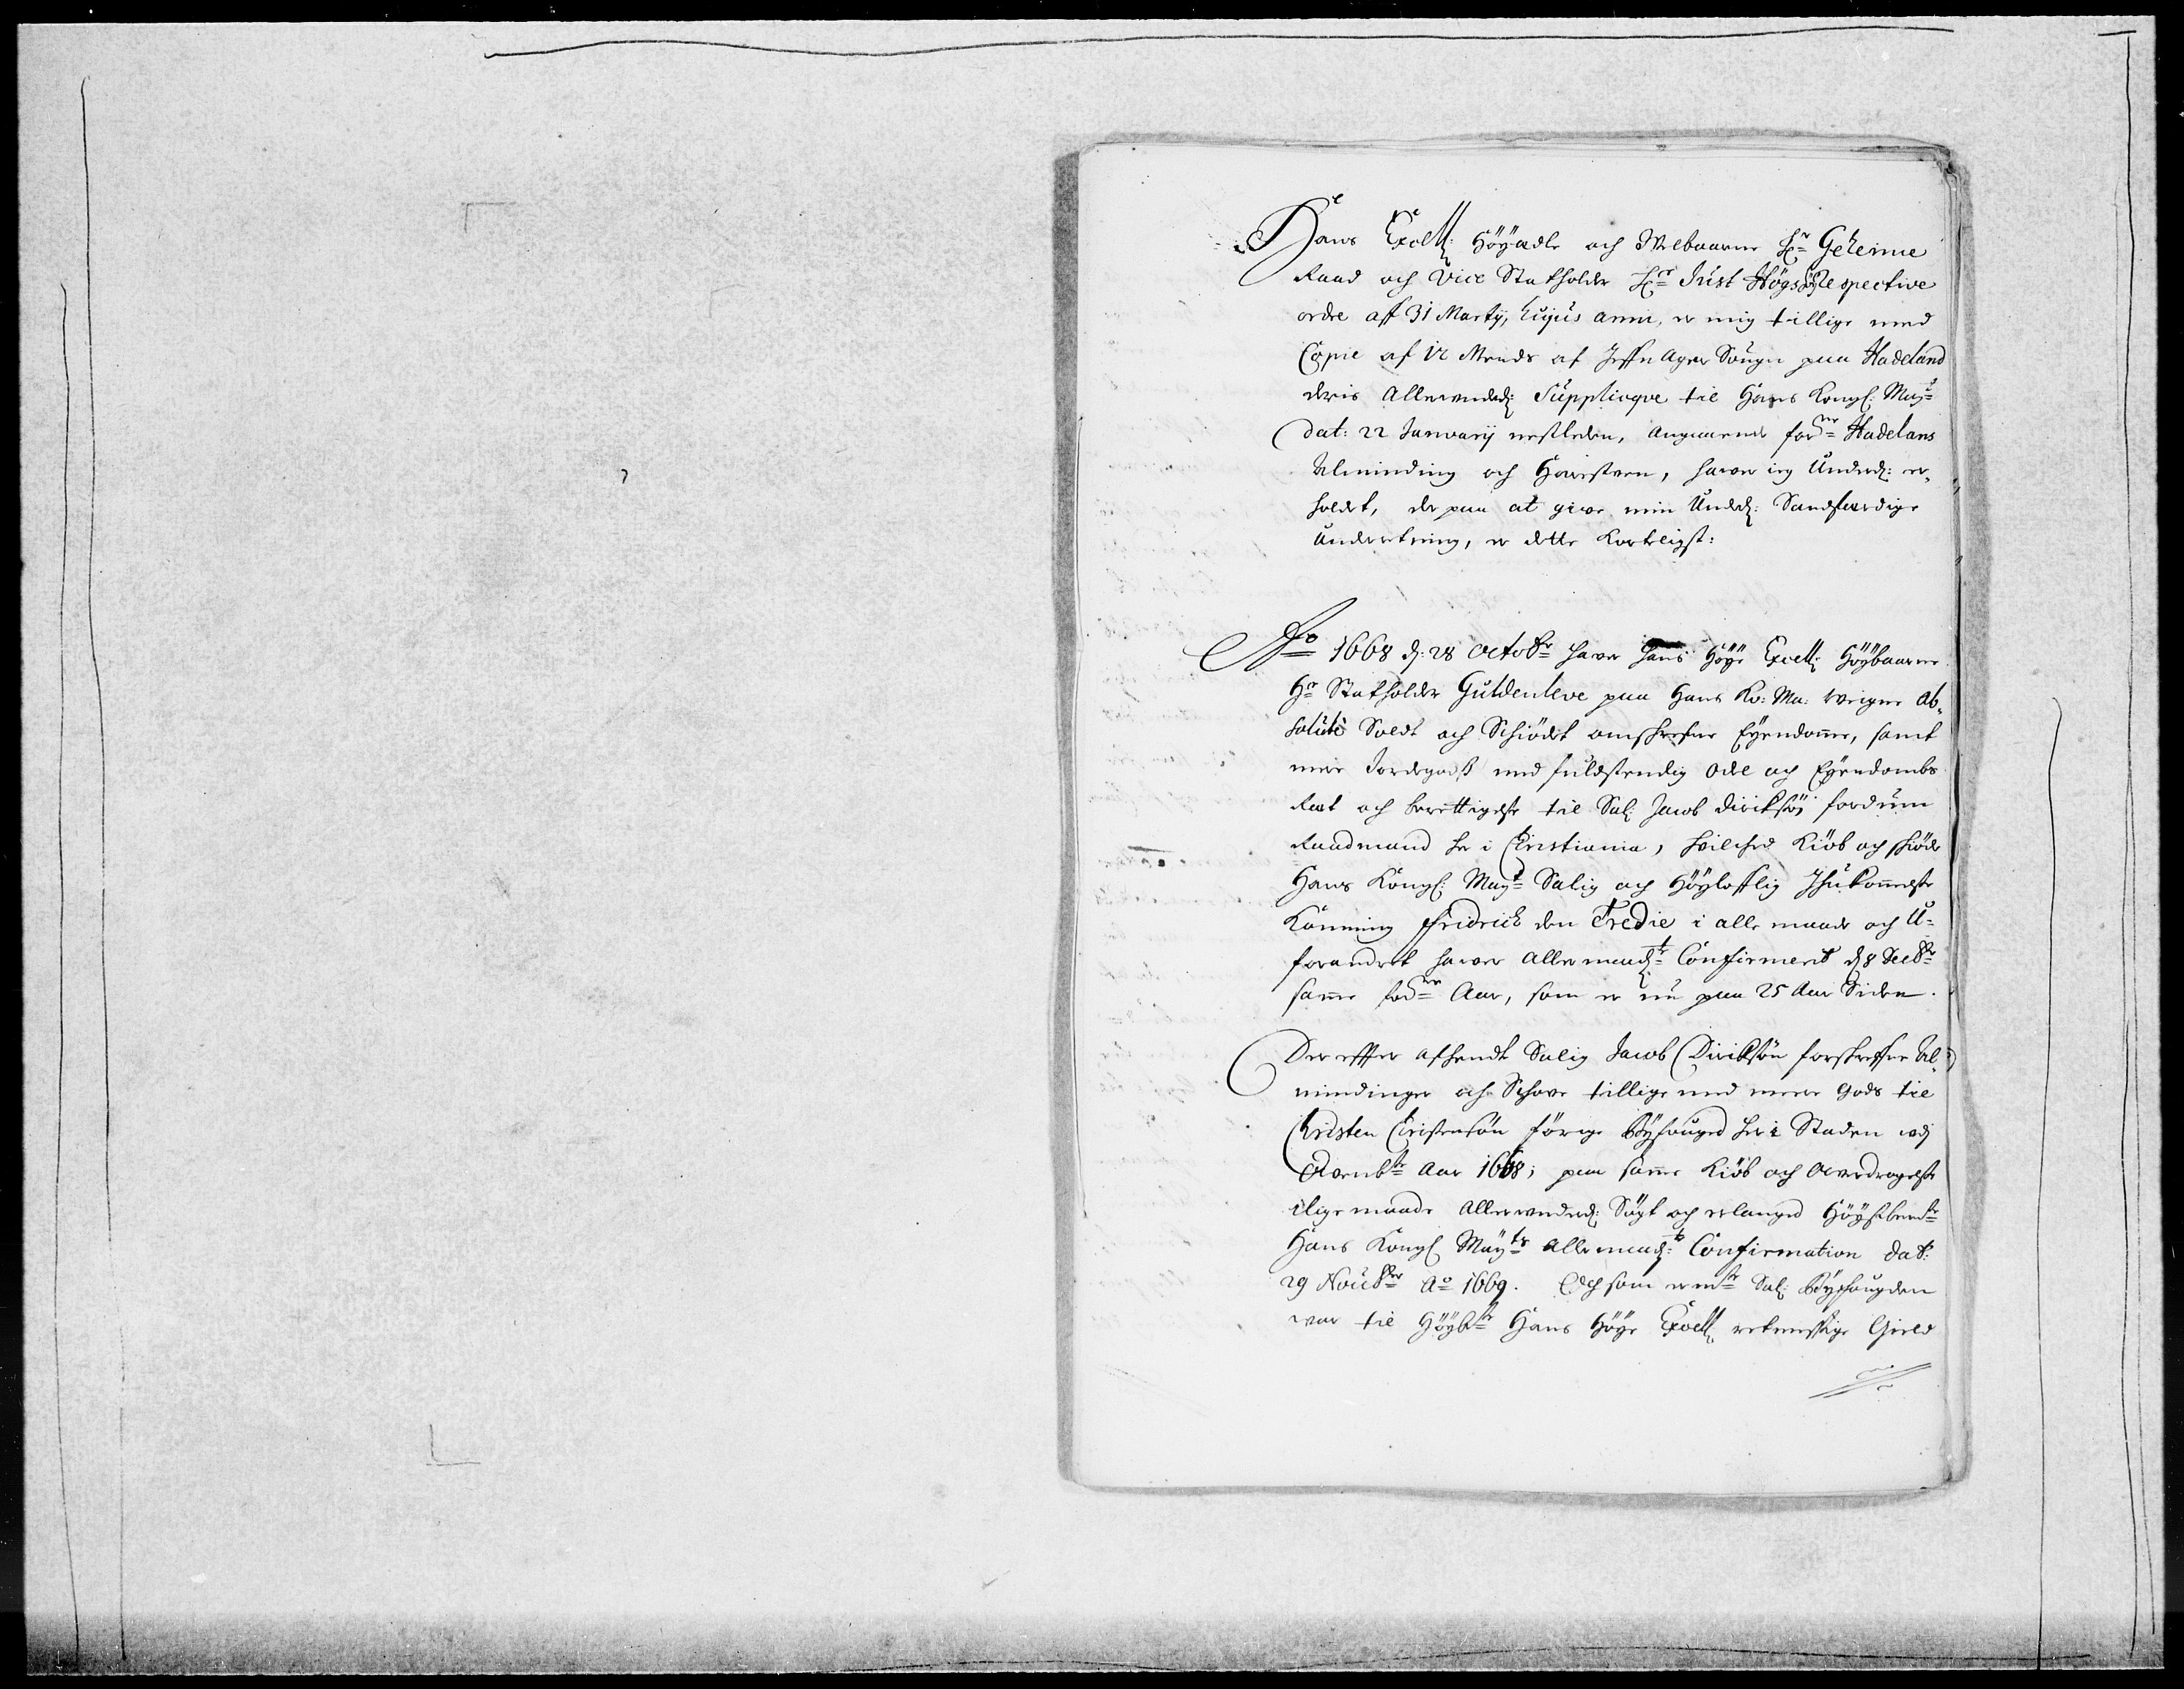 Hans Excell: Höyædle och Welbaarne Hr Geheime
Raad och Vice Statholder Hr Just Högs Respective
ordre aff 31 Marty, hujus anni, er mig tillige med
Copie af 12 Mends af Sougn paa Hadeland
deris Allerunded: Supplicqve til Hans Kongl: Mayt
dat: 22 January nestleden, angaaende forne Hadelans
Alminding och, hawer ieg Underd: er¬
holdet, der paa at give min Underd: Sandferdige
Underretning, er dette Korteligst:
Ao 1668 d: 28 Octobr hawer hans Höye Excell: Höybaarne
Hr Statholder Guldenlewe paa Hans Ko: Ma: weigne ab¬
solute Soldt och Schiödet omschrefne Eyendomme, samt
mere Jordegodß med fuldstendig Odel og Eyendombs
Ræt och berettigelse til Sal: Jacob Dirichsøn fordum
Raadmand her i Christiania, hvilched Kiöb og schiöde
Hans Kongl: Mayt Salig och Höylofflig Ihukommelse
Konning Fridrich den Tredie i alle maade och U¬
forandret hawer Allernaadt Confirmerit d 8 Decbr
samme forne Aar, som er nu paa 25 Aar Siden.
Der effter afhendt Salig Jacob Dirichsön forschrefne Al¬
mindinger och Schowe tillige med mere Gods til
Christen Christensön förige Byfouged her i Staden udj
Aar 1668; paa samme Kiöb och Overdragelse
i lige maade Allerunderd: Sögt och erlanged Höystbemte
Hans Kongl Mayts Allernaadt: Confirmation dat:
29 Noubr Ao 1669. Och som Sal: Byfougden
war til Höybte Hans Höye Excell retmessige Gield